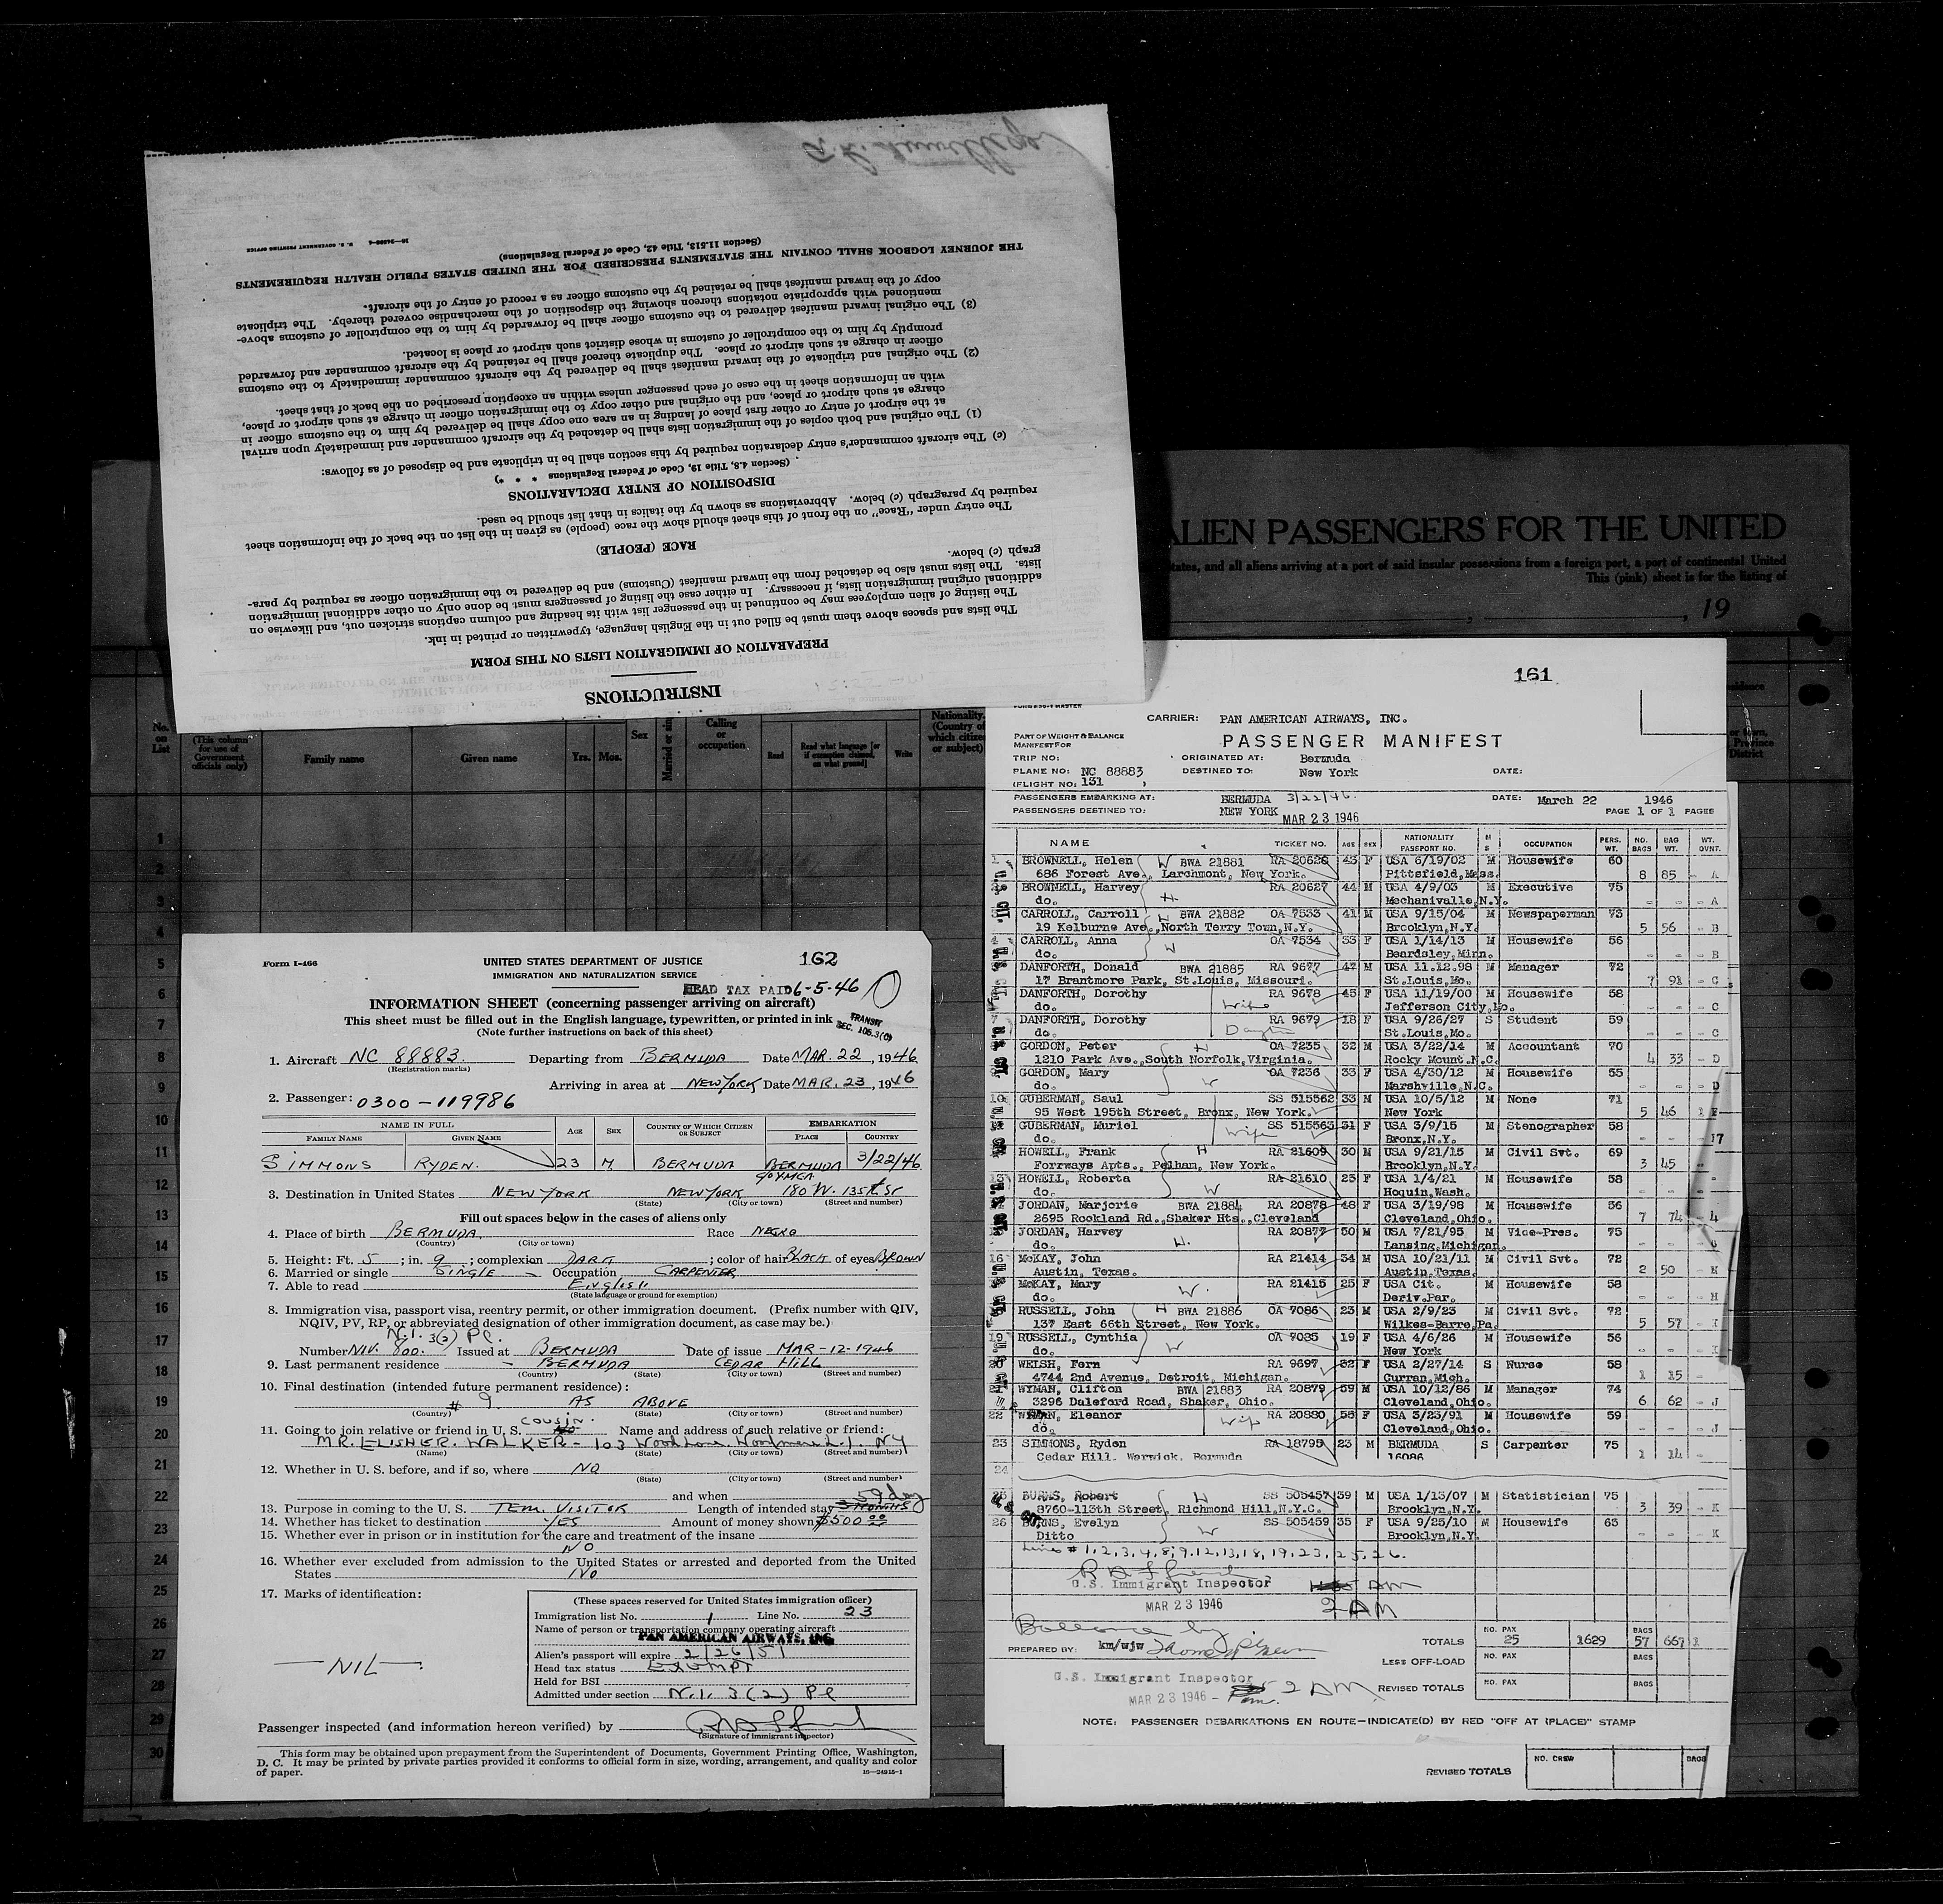 INSTRUCTIONS
PREPARATION OF IMMIGRATION LISTS ON THIS FORM
The lists and spaces above them must be filled out in the English language, typewritten or printed in ink.
The listing of alien employees may be continued in the passenger list with its heading and column captions stricken out, and likewise on
additional original immigration lists, if necessary. In either case the listing of passengers must be done only on other additional immigration
lists. The lists must also be detached from the inward manifest (Customs) and be delivered to the immigration officer as required by para-
graph (c) below.
RACE (PEOPLE)
The entry under "Race" on the front of this sheet should show the race (people) as given in the list on the back of the information sheet
required by paragraph (c) below. Abbreviations as shown by the italics in that list should be used.
DISPOSITION OF ENTRY DECLARATIONS
(Section 4.8, Title 19, Code of Federal Regulations * * *)
(c) The aircraft commander's entry declaration required by this section shall be in triplicate and be disposed of as follows:
(1) The original and both copies of the immigration lists shall be detached by the aircraft commander and immediately upon arrival
at the airport of entry or other first place of landing in an area one copy shall be delivered by him to the customs officer in
charge at such airport or place, and the original and other copy to the immigration officer in charge at such airport or place,
with an information sheet in the case of each passenger unless within an exception prescribed on the back of that sheet.
(2) The original and triplicate of the inward manifest shall be delivered by the aircraft commander immediately to the customs
officer in charge at such airport or place. The duplicate thereof shall be retained by the aircraft commander and forwarded
promptly by him to the comptroller of customs in whose district such airport or place is located.
(3) The original inward manifest delivered to the customs officer shall be forwarded by him to the comptroller of customs above-
mentioned with appropriate notations thereon showing the disposition of the merchandise covered thereby. The triplicate
copy of the inward manifest shall be retained by the customs officer as a record of entry of the aircraft.
THE JOURNEY LOGBOOK SHALL CONTAIN THE STATEMENTS PRESCRIBED FOR THE UNITED STATES PUBLIC HEALTH REQUIREMENTS
(Section 11.513, Title 42, Code of Federal Regulations)
U. S. GOVERNMENT PRINTING OFFICE
ALIEN PASSENGERS FOR THE UNITED
tates, and all aliens arriving at a port of said insular possessions from a foreign port, a port of continental United
This (pink) sheet is for the listing of
, 19
No. on List
(This column for use of Government officials only)
Family name Given name Yrs. Mos. Sex Married or sin Calling or occupation Read Read what language [or if exemption claimed, on what ground] Write Nationality. (Country of which citizen or subject)
1
2
3
4
5
6
7
8
9
10
11
12
13
14
15
16
17
18
19
20
21
22
23
24
25
26
27
28
29
30
Form I-466
UNITED STATES DEPARTMENT OF JUSTICE 162
IMMIGRATION AND NATURALIZATION SERVICE
HEAD TAX PAID 6-5-46
INFORMATION SHEET (concerning passenger arriving on aircraft)
This sheet must be filled out in the English language, typewritten, or printed in ink
TRANSIT
SEC. 105.3(0)
(Note further instructions on back of this sheet)
1. Aircraft NC 88883. Departing from BERMUDA Date MAR. 22, 1946
(Registration marks)
Arriving in area at NEW YORK Date MAR. 23, 1946
2. Passenger: 0300-119986
NAME IN FULL AGE SEX COUNTRY OF WHICH CITIZEN OR SUBJECT EMBARKATION
FAMILY NAME GIVEN NAME PLACE COUNTRY
SIMMONS RYDEN. 23 M. BERMUDA BERMUDA 3/22/46
c/o YMCA
3. Destination in United States NEW YORK NEW YORK 180 W. 135th St
(State) (City or town) (Street and number)
Fill out spaces below in the cases of aliens only
4. Place of birth BERMUDA. Race NEGRO
(Country) (City or town)
5. Height: Ft. 5; in. 9; complexion DARK; color of hair BLACK of eyes BROWN
6. Married or single SINGLE Occupation CARPENTER
7. Able to read English
(State language or ground for exemption)
8. Immigration visa, passport visa, reentry permit, or other immigration document. (Prefix number with QIV,
NQIV, PV, RP, or abbreviated designation of other immigration document, as case may be.)
N.I. 3(2) PL.
Number NIV. 800. Issued at BERMUDA Date of issue MAR-12-1946
9. Last permanent residence BERMUDA CEDAR HILL
(Country) (State) (City or town) (Street and number)
10. Final destination (intended future permanent residence):
# 9 AS ABOVE
(Country) (State) (City or town) (Street and number)
COUSIN.
11. Going to join relative or friend in U. S. Name and address of such relative or friend:
MR. ELISHER. WALKER - 103 Wood Lane. Woodmere L.I. NY
(Name) (State) (City or town) (Street and number)
12. Whether in U. S. before, and if so, where NO
(State) (City or town) (Street and number)
and when 59 day
13. Purpose in coming to the U. S. TEM. VISITOR Length of intended stay 3 MONTHS
14. Whether has ticket to destination YES Amount of money shown $500 00
15. Whether ever in prison or in institution for the care and treatment of the insane
NO
16. Whether ever excluded from admission to the United States or arrested and deported from the United
States NO
17. Marks of identification:
—NIL—
(These spaces reserved for United States immigration officer)
Immigration list No. 1 Line No. 23
Name of person or transportation company operating aircraft
PAN AMERICAN AIRWAYS, INC.
Alien's passport will expire 2/26/51
Head tax status Exempt
Held for BSI
Admitted under section N.I. 3(2) Pl
Passenger inspected (and information hereon verified) by
(Signature of immigrant inspector)
This form may be obtained upon prepayment from the Superintendent of Documents, Government Printing Office, Washington,
D. C. It may be printed by private parties provided it conforms to official form in size, wording, arrangement, and quality and color
of paper. 16—24915-1
161
CARRIER: PAN AMERICAN AIRWAYS, INC.
PART OF WEIGHT & BALANCE
MANIFEST FOR PASSENGER MANIFEST
TRIP NO: ORIGINATED AT: Bermuda
PLANE NO: NC 88883 DESTINED TO: New York DATE:
(FLIGHT NO: 131 )
PASSENGERS EMBARKING AT: BERMUDA 3/22/46. DATE: March 22 1946
PASSENGERS DESTINED TO: NEW YORK MAR 23 1946 PAGE 1 OF 1 PAGES
NAME TICKET NO. AGE SEX NATIONALITY PASSPORT NO. M S OCCUPATION PERS. WT. NO. BAGS BAG WT. WT. OVNT.
1 BROWNELL, Helen W BWA 21881 RA 20626 43 F USA 6/19/02 M Housewife 60
686 Forest Ave., Larchmont, New York. Pittsfield, Mass. 8 85 - A
BROWNELL, Harvey H. RA 20627 44 M USA 4/9/03 M Executive 75
do. Mechanivalle, N.Y. - - - A
CARROLL, Carroll H BWA 21882 OA 7533 41 M USA 9/15/04 M Newspaperman 73
19 Kelburne Ave., North Terry Town, N.Y. Brooklyn, N.Y. 5 56 - B
4 CARROLL, Anna W OA 7534 33 F USA 1/14/13 M Housewife 56
do. Beardsley, Minn. - - - B
DANFORTH, Donald BWA 21885 RA 9677 47 M USA 11.12.98 M Manager 72
17 Brantmore Park, St.Louis, Missouri. St.Louis, Mo. 7 91 - C
DANFORTH, Dorothy Wife RA 9678 45 F USA 11/19/00 M Housewife 58
do. Jefferson City, Mo. - - - C
7 DANFORTH, Dorothy RA 9679 18 F USA 9/26/27 S Student 59
do. St.Louis, Mo. - - - C
GORDON, Peter H OA 7235 32 M USA 3/22/14 M Accountant 70
1210 Park Ave., South Norfolk, Virginia. Rocky Mount, N.C. 4 33 - D
GORDON, Mary W OA 7236 33 F USA 4/30/12 M Housewife 55
do. Marshville, N.C. - - - D
10 GUBERMAN, Saul SS 515562 33 M USA 10/5/12 M None 71
95 West 195th Street, Bronx, New York. New York 5 46 1 E
GUBERMAN, Muriel Wife SS 515563 31 F USA 3/9/15 M Stenographer 58
do. Bronx, N.Y. - - -
HOWELL, Frank H RA 21609 30 M USA 9/21/15 M Civil Svt. 69
Forrways Apts., Pelham, New York. Brooklyn, N.Y. 3 45 -
13 HOWELL, Roberta W RA 21610 25 F USA 1/4/21 M Housewife 58
do. Hoquin, Wash. - - -
JORDAN, Marjorie BWA 21884 RA 20878 48 F USA 3/19/98 M Housewife 56
2695 Rockland Rd., Shaker Hts., Cleveland Cleveland, Ohio. 7 74 -
JORDAN, Harvey RA 20877 50 M USA 7/21/95 M Vice-Pres. 75
do. Lansing, Michigan. - - -
16 McKAY, John RA 21414 34 M USA 10/21/11 M Civil Svt. 72
Austin, Texas. Austin, Texas. 2 50 - H
McKAY, Mary W. RA 21415 25 F USA Cit. M Housewife 58
do. Deriv.Par. - - - H
RUSSELL, John H BWA 21886 OA 7086 23 M USA 2/9/23 M Civil Svt. 72
137 East 66th Street, New York. Wilkes-Barre, Pa. 5 57 - I
19 RUSSELL, Cynthia W OA 7085 19 F USA 4/6/26 M Housewife 56
do. New York - - - I
20 WELSH, Fern RA 9697 32 F USA 2/27/14 S Nurse 58
4744 2nd Avenue, Detroit, Michigan. Curran, Mich. 1 15 -
21 WYMAN, Clifton BWA 21883 RA 20879 59 M USA 10/12/86 M Manager 74
3296 Daleford Road, Shaker, Ohio. Cleveland, Ohio. 6 62 - J
22 WYMAN, Eleanor Wife RA 20880 55 F USA 3/23/91 M Housewife 59
do. Cleveland, Ohio. - - - J
23 SIMMONS, Ryden RA 18795 23 M BERMUDA S Carpenter 75
Cedar Hill. Warwick. Bermuda 16086 1 14 -
24
25 BURNS, Robert H SS 505457 39 M USA 1/13/07 M Statistician 75
8760-113th Street, Richmond Hill, N.Y.C. Brooklyn, N.Y. 3 39 - K
26 BURNS, Evelyn W SS 505459 35 F USA 9/25/10 M Housewife 63
Ditto Brooklyn, N.Y. - - - K
Line # 1, 2, 3, 4, 8, 9, 12, 13, 18, 19, 23, 25, 26.
U.S. Immigrant Inspector
MAR 23 1946 2 AM
Balance by
PREPARED BY: km/wjw
TOTALS NO. PAX 25 1629 BAGS 57 667 1
LESS OFF-LOAD NO. PAX BAGS
U.S. Immigrant Inspector
MAR 23 1946 - 2 AM REVISED TOTALS NO. PAX BAGS
NOTE: PASSENGER DEBARKATIONS EN ROUTE—INDICATE(D) BY RED "OFF AT (PLACE)" STAMP
REVISED TOTALS NO. CREW BAGS